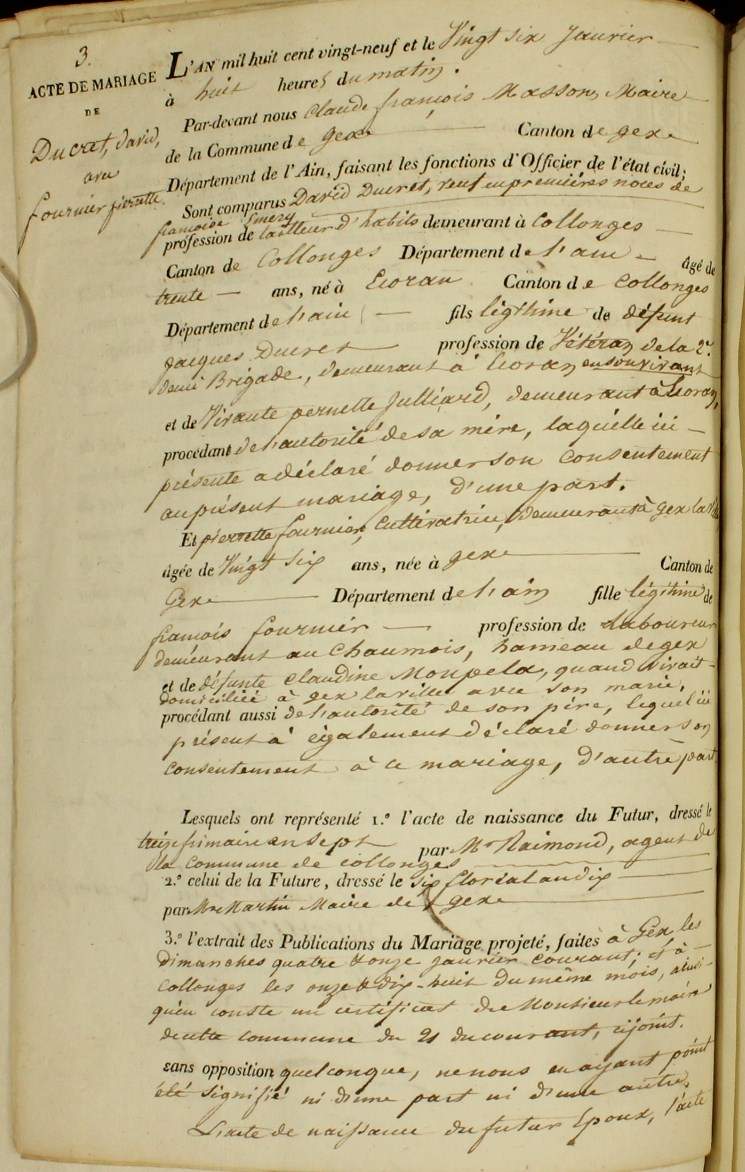 3.
ACTE DE MARIAGE
DE
Ducret, david,
avec
fournier pierrette
L'AN mil huit cent vingt-neuf et le Vingt six Janvier
à huit heures du matin.
Par-devant nous Claude françois Masson, Maire
de la Commune de Gex Canton de gex
Département de l'Ain, faisant les fonctions d'Officier de l'état civil;
Sont comparus David Ducret, veuf en premières noces de
françoise Emery
profession de tailleur d'habits demeurant à Collonges
Canton de Collonges Département de l'ain âgé de
trente ans, né à Ecoran Canton de Collonges
Département de l'ain fils légitime de défunt
Jacques Ducret profession de Vétéran de la 2e.
demi Brigade, demeurant à Ecoran en son vivant
et de Vivante pernette Julliard, demeurant à Ecoran,
procédant de l'autorité de sa mère, laquelle ici
présente a déclaré donner son consentement
au présent mariage, d'une part.
Et pierrette fournier, Cultivatrice, demeurant à gex la ville
âgée de Vingt Six ans, née à gex Canton de
Gex Département de l'ain fille légitime de
françois fournier profession de Laboureur
demeurant au Chaumois, hameau de gex
et de défunte Claudine Monpela, quand vivait
domiciliée à gex la ville avec son marie,
procédant aussi de l'autorité de son père, lequel ici
présent à également déclaré donner son
consentement à ce mariage, d'autre part.
Lesquels ont représenté 1.° l'acte de naissance du Futur, dressé le
treize frimaire an sept par Mr Raimond, agent de
la Commune de collonges
2.° celui de la Future, dressé le six floréal an dix
par Mr Martin Maire de gex
3.° l'extrait des Publications du Mariage projeté, faites à Gex les
dimanches quatre & onze janvier courant; et à
Collonges les onze & dix-huit du même mois, ainsi
qu'en conste un certificat de Monsieur le maire
de cette commune du 21 du courant, cijoint.
sans opposition quelconque, ne nous en ayant point
été signifié ni d'une part ni d'une autre.
L'acte de naissance du futur Epoux, l'acte